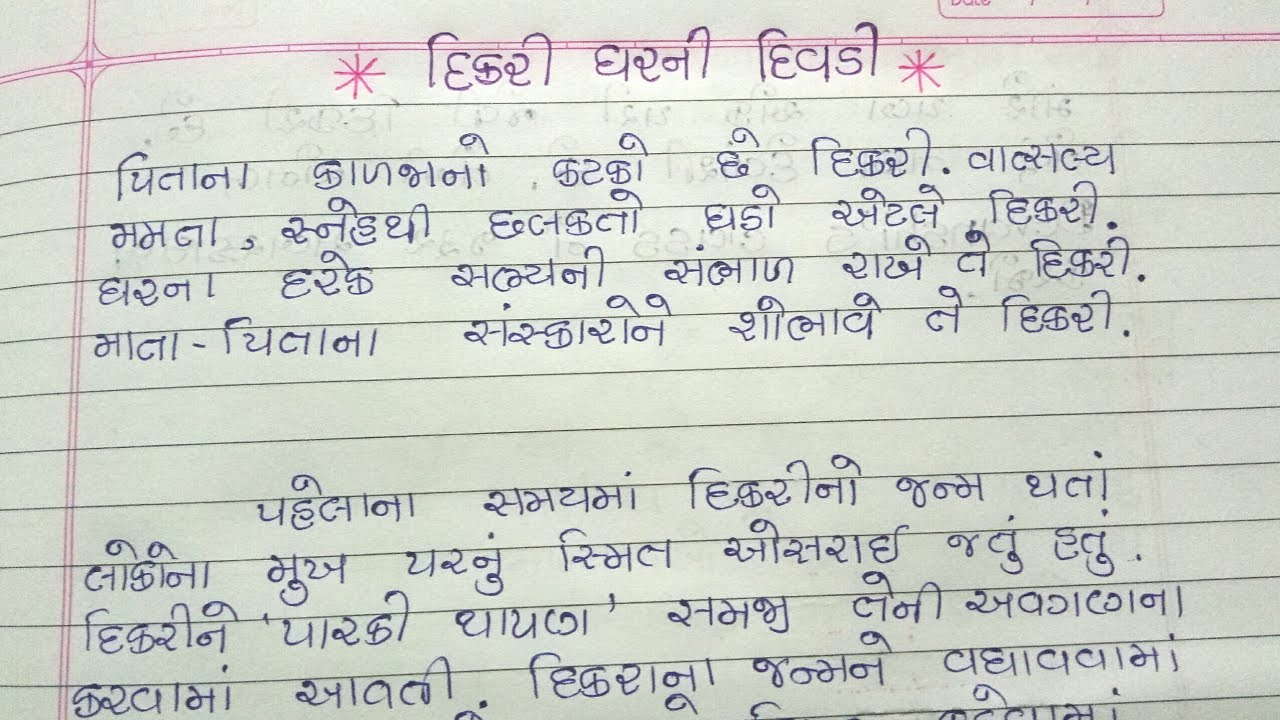 Date / /
* દિકરી ઘરની દિવડી *
પિતાના કાળજાનો કટકો છે દિકરી. વાત્સલ્ય
મમતા, સ્નેહથી છલકતો ઘડો એટલે દિકરી.
ઘરના દરેક સભ્યની સંભાળ રાખે તે દિકરી.
માતા-પિતાના સંસ્કારોને શોભાવે તે દિકરી.
પહેલાના સમયમાં દિકરીનો જન્મ થતાં
લોકોના મુખ પરનું સ્મિત ઓસરાઈ જતું હતું.
દિકરીને 'પારકી થાપણ' સમજી તેની અવગણના
કરવામાં આવતી. દિકરાના જન્મને વધાવવામાં